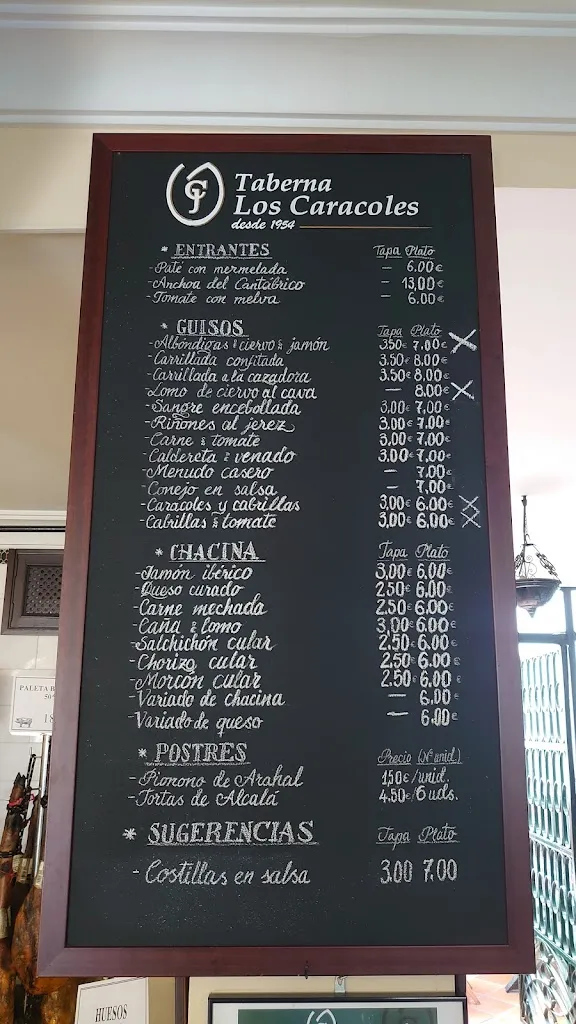 CJ
Taberna
Los Caracoles
desde 1954
* ENTRANTES Tapa Plato
-Paté con mermelada — 6.00€
-Anchoa del Cantábrico — 13,00€
-Tomate con melva — 6.00€
* GUISOS Tapa Plato
-Albóndigas ciervo jamón 3.50€ 7,00€ X
-Carrillada confitada 3.50€ 8.00€
-Carrillada a la cazadora 3.50€ 8.00€
-Lomo de ciervo al cava — 8.00€ X
-Sangre encebollada 3.00€ 7,00€
-Riñones al jerez 3.00€ 7.00€
-Carne tomate 3.00€ 7.00€
-Caldereta venado 3.00€ 7,00€
-Menudo casero — 7.00€
-Conejo en salsa — 7,00€
-Caracoles y cabrillas 3,00€ 6.00€ X
-Cabrillas tomate 3,00€ 6,00€ X
* CHACINA Tapa Plato
-Jamón ibérico 3,00€ 6.00€
-Queso curado 2.50€ 6.00€
-Carne mechada 2.50€ 6.00€
-Caña lomo 3,00€ 6.00€
-Salchichón cular 2.50€ 6.00€
-Chorizo cular 2.50€ 6.00€
-Morcón cular 2.50€ 6,00€
-Variado de chacina — 6,00€
-Variado de queso — 6.00€
* POSTRES Precio (Nº unid.)
-Pionono de Arahal 1,50€/unid.
-Tortas de Alcalá 4.50€/6 uds.
* SUGERENCIAS Tapa Plato
- Costillas en salsa 3.00 7.00
PALETA
HUESOS